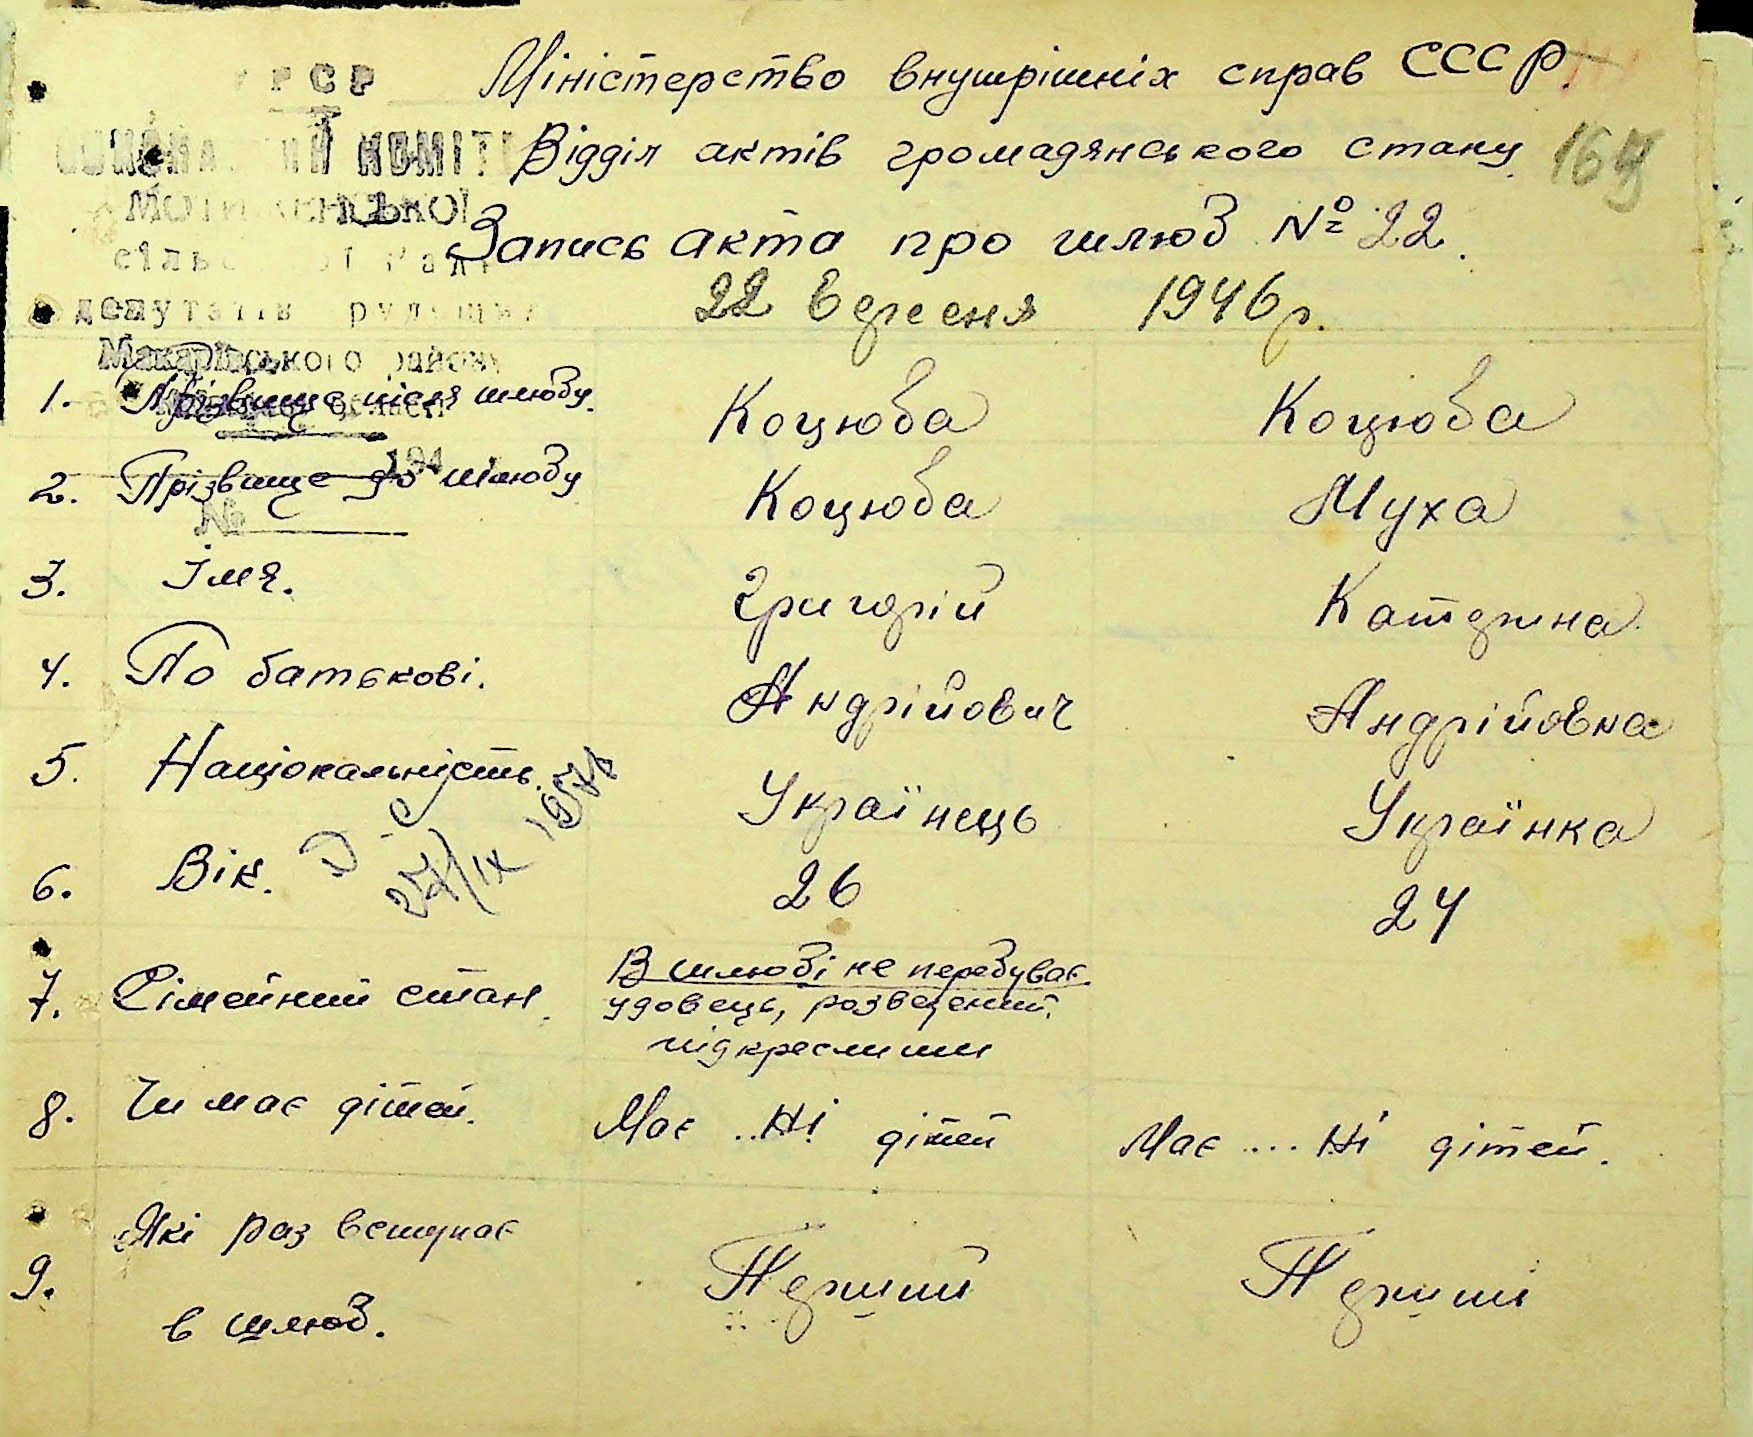 РСР
КОМІТ
Міністерство внутрішніх справ СССР.
Відділ актів громадянського стану
164
Запись акта про шлюб № 22.
22 вересня 1946 р.
депутатів
Макарівського району
1. Прізвище після шлюбу. Коцюба Коцюба
194
2. Прізвище до шлюбу Коцюба Муха
№
3. Імя. Григорій Катерина
4. По батькові. Андрійович Андрійовна
5. Національність. Українець Українка
27/IX
6. Вік. 26 24
7. Сімейний стан. В шлюбі не перебуває
удовець, розведений.
підкреслити
8. Чи має дітей. Має ..Ні дітей Має .... Ні дітей.
9. Які раз вступає
в шлюб. Перший Перший